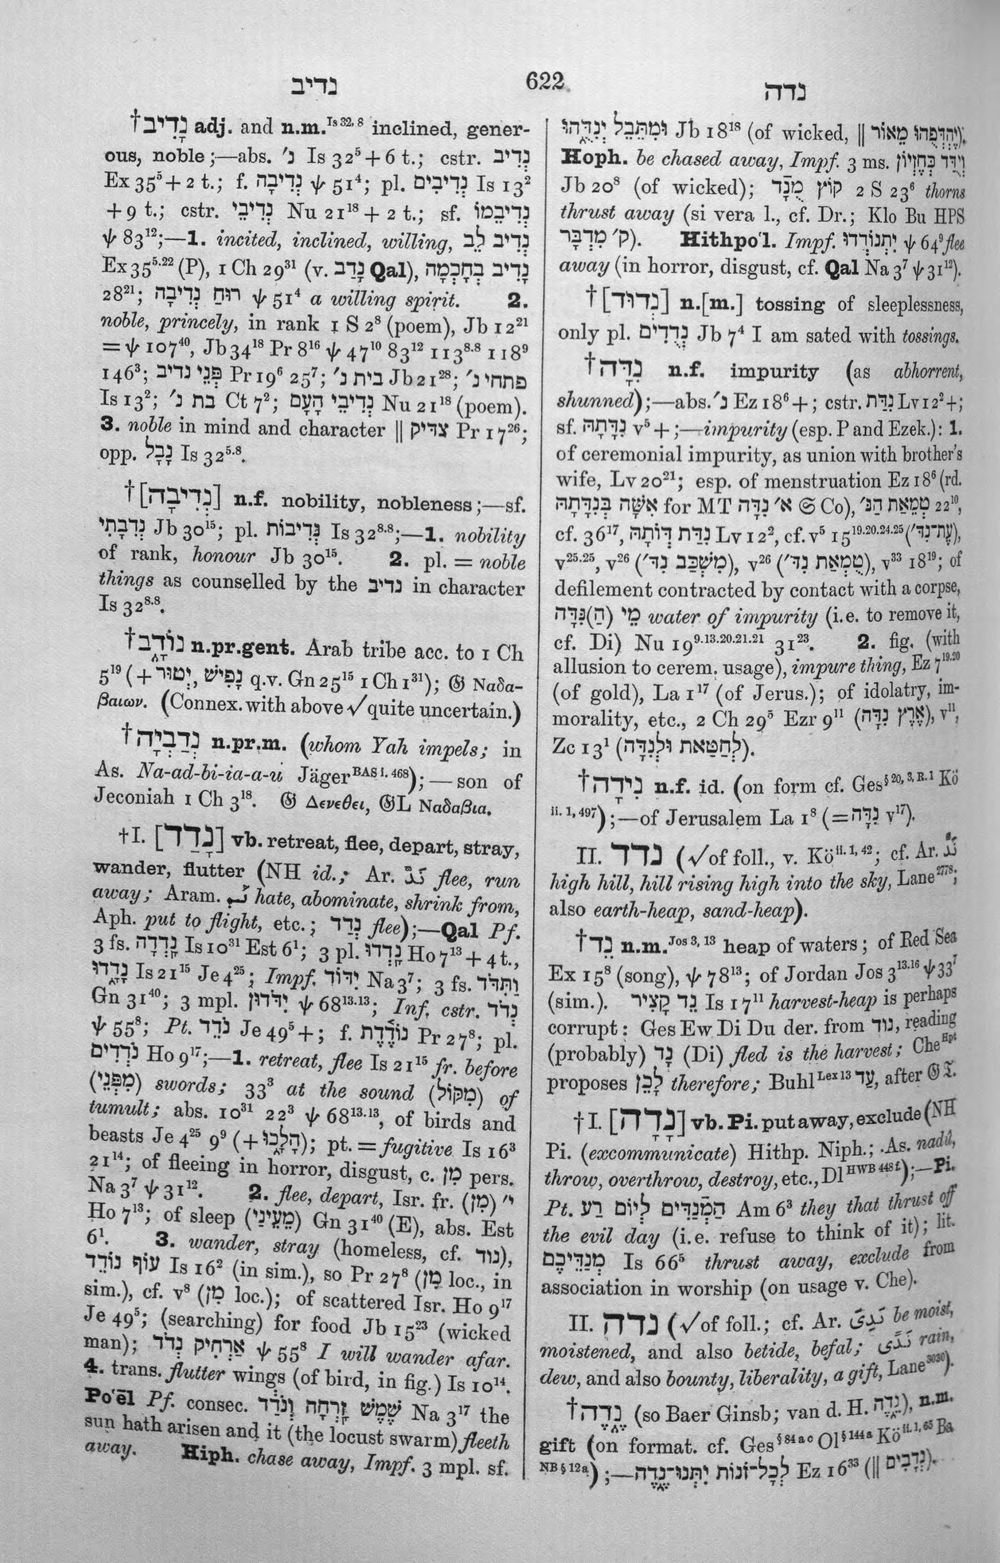 נדיב
622
נדה
†נָדִיב adj. and n.m.Is 32, 8 inclined, gener-
ous, noble;—abs. נ׳ Is 32⁵ + 6 t.; cstr. נְדִיב
Ex 35⁵ + 2 t.; f. נְדִיבָה ψ 51⁴; pl. נְדִיבִים Is 13²
+ 9 t.; cstr. נְדִיבֵי Nu 21¹⁸ + 2 t.; sf. נְדִיבֵמוֹ
ψ 83¹²;—1. incited, inclined, willing, נְדִיב לֵב
Ex 35⁵·²² (P), 1 Ch 29³¹ (v. נָדַב Qal), נָדִיב בְּחָכְמָה
28²¹; רוּחַ נְדִיבָה ψ 51⁴ a willing spirit. 2.
noble, princely, in rank 1 S 2⁸ (poem), Jb 12²¹
= ψ 107⁴⁰, Jb 34¹⁸ Pr 8¹⁶ ψ 47¹⁰ 83¹² 113⁸·⁸ 118⁹
146³; פְּנֵי נדיב Pr 19⁶ 25⁷; בית נ׳ Jb 21²⁸; פתחי נ׳
Is 13²; בת נ׳ Ct 7²; נְדִיבֵי הָעָם Nu 21¹⁸ (poem).
3. noble in mind and character || צדיק Pr 17²⁶;
opp. נָבָל Is 32⁵·⁸.
†[נְדִיבָה] n.f. nobility, nobleness;—sf.
נְדִבָתִי Jb 30¹⁵; pl. נְדִיבוֹת Is 32⁸·⁸;—1. nobility
of rank, honour Jb 30¹⁵. 2. pl. = noble
things as counselled by the נדיב in character
Is 32⁸·⁸.
†נוֹדָב n.pr.gent. Arab tribe acc. to 1 Ch
5¹⁹ (+ יְטוּר, נָפִישׁ q.v. Gn 25¹⁵ 1 Ch 1³¹); 𝔊 Ναδα-
βαιων. (Connex. with above √ quite uncertain.)
†נְדַבְיָה n.pr.m. (whom Yah impels; in
As. Na-ad-bi-ia-a-u Jäger BAS i. 468);—son of
Jeconiah 1 Ch 3¹⁸. 𝔊 Δενεθει, 𝔊L Ναδαβια.
†I. [נָדַד] vb. retreat, flee, depart, stray,
wander, flutter (NH id.; Ar. نَدَّ flee, run
away; Aram. hate, abominate, shrink from,
Aph. put to flight, etc.; נְדַד flee);—Qal Pf.
3 fs. נָדְדָה Is 10³¹ Est 6¹; 3 pl. נָדְדוּ Ho 7¹³ + 4 t.,
נָדָדוּ Is 21¹⁵ Je 4²⁵; Impf. יִדּוֹד Na 3⁷; 3 fs. וַתִּדַּד
Gn 31⁴⁰; 3 mpl. יִדֹּדוּן ψ 68¹³·¹³; Inf. cstr. נְדֹד
ψ 55⁸; Pt. נֹדֵד Je 49⁵ +; f. נוֹדֶדֶת Pr 27⁸; pl.
נֹדְדִים Ho 9¹⁷;—1. retreat, flee Is 21¹⁵ fr. before
(מִפְּנֵי) swords; 33³ at the sound (מִקּוֹל) of
tumult; abs. 10³¹ 22³ ψ 68¹³·¹³, of birds and
beasts Je 4²⁵ 9⁹ (+ הָלָכוּ); pt. = fugitive Is 16³
21¹⁴; of fleeing in horror, disgust, c. מִן pers.
Na 3⁷ ψ 31¹². 2. flee, depart, Isr. fr. (מִן) י״
Ho 7¹³; of sleep (מֵעֵינַי) Gn 31⁴⁰ (E), abs. Est
6¹. 3. wander, stray (homeless, cf. נוד),
עוֹף נוֹדֵד Is 16² (in sim.), so Pr 27⁸ (מִן loc., in
sim.), cf. v⁸ (מִן loc.); of scattered Isr. Ho 9¹⁷
Je 49⁵; (searching) for food Jb 15²³ (wicked
man); אַרְחִיק נְדֹד ψ 55⁸ I will wander afar.
4. trans. flutter wings (of bird, in fig.) Is 10¹⁴.
Po‘ēl Pf. consec. שֶׁמֶשׁ זָרְחָה וְנֹדַד Na 3¹⁷ the
sun hath arisen and it (the locust swarm) fleeth
away. Hiph. chase away, Impf. 3 mpl. sf.
וּמִתֵּבֵל יְנִדֻּהוּ Jb 18¹⁸ (of wicked, || יֶהְדְּפֻהוּ מֵאוֹר).
Hoph. be chased away, Impf. 3 ms. וְיֻדַּד כְּחֶזְיוֹן
Jb 20⁸ (of wicked); קוֹץ מֻנָד 2 S 23⁶ thorns
thrust away (si vera l., cf. Dr.; Klo Bu HPS
מִדְבָּר ק׳). Hithpo‘l. Impf. יִתְנוֹדֲדוּ ψ 64⁹ flee
away (in horror, disgust, cf. Qal Na 3⁷ ψ 31¹²).
†[נְדוּד] n.[m.] tossing of sleeplessness,
only pl. נְדֻדִים Jb 7⁴ I am sated with tossings.
†נִדָּה n.f. impurity (as abhorrent,
shunned);—abs. נ׳ Ez 18⁶ +; cstr. נִדַּת Lv 12² +;
sf. נִדָּתָהּ v⁵ +;—impurity (esp. P and Ezek.): 1.
of ceremonial impurity, as union with brother's
wife, Lv 20²¹; esp. of menstruation Ez 18⁶ (rd.
אִשָּׁה בְּנִדָּתָהּ for MT א׳ נִדָּה 𝔊 Co), טְמֵאַת הַנּ׳ 22¹⁰,
cf. 36¹⁷, נִדַּת דְּוֹתָהּ Lv 12², cf. v⁵ 15¹⁹·²⁰·²⁴·²⁵ (עֶת־נִד׳),
v²⁵·²⁵, v²⁶ (מִשְׁכַּב נִד׳), v²⁶ (טֻמְאַת נִד׳), v³³ 18¹⁹; of
defilement contracted by contact with a corpse,
מֵי (הַ)נִּדָּה water of impurity (i.e. to remove it,
cf. Di) Nu 19⁹·¹³·²⁰·²¹·²¹ 31²³. 2. fig. (with
allusion to cerem. usage), impure thing, Ez 7¹⁹·²⁰
(of gold), La 1¹⁷ (of Jerus.); of idolatry, im-
morality, etc., 2 Ch 29⁵ Ezr 9¹¹ (אֶרֶץ נִדָּה), v¹¹,
Zc 13¹ (לְחַטַּאת וּלְנִדָּה).
†נִידָה n.f. id. (on form cf. Ges§ 20, 3, R. 1 Kö
ii. 1, 497);—of Jerusalem La 1⁸ (= נִדָּה v¹⁷).
II. נדד (√ of foll., v. Kö ii. 1, 42; cf. Ar. نَدّ
high hill, hill rising high into the sky, Lane 2778;
also earth-heap, sand-heap).
†נֵד n.m.Jos 3, 13 heap of waters; of Red Sea
Ex 15⁸ (song), ψ 78¹³; of Jordan Jos 3¹³·¹⁶ ψ 33⁷
(sim.). נֵד קָצִיר Is 17¹¹ harvest-heap is perhaps
corrupt: Ges Ew Di Du der. from נוד, reading
(probably) נָד (Di) fled is the harvest; Che Hpt
proposes לָכֵן therefore; Buhl Lex 13 עַד, after 𝔊 𝔗.
†I. [נָדָה] vb. Pi. put away, exclude (NH
Pi. (excommunicate) Hithp. Niph.; As. nadû,
throw, overthrow, destroy, etc., Dl HWB 448 f.);—Pi.
Pt. הַמְנַדִּים לְיוֹם רָע Am 6³ they that thrust off
the evil day (i.e. refuse to think of it); lit.
מְנַדֵּיכֶם Is 66⁵ thrust away, exclude from
association in worship (on usage v. Che).
II. נדה (√ of foll.; cf. Ar. نَدِىَ be moist,
moistened, and also betide, befal; نَدًى rain,
dew, and also bounty, liberality, a gift, Lane 3030).
†נֵדֶה (so Baer Ginsb; van d. H. נֵדֶה), n.m.
gift (on format. cf. Ges§ 84 a c Ol§ 144 a Kö ii. 1, 65 Ba
NB § 12 a);—לְכָל־זֹנוֹת יִתְּנוּ־נֵדֶה Ez 16³³ (|| נְדָבִים).